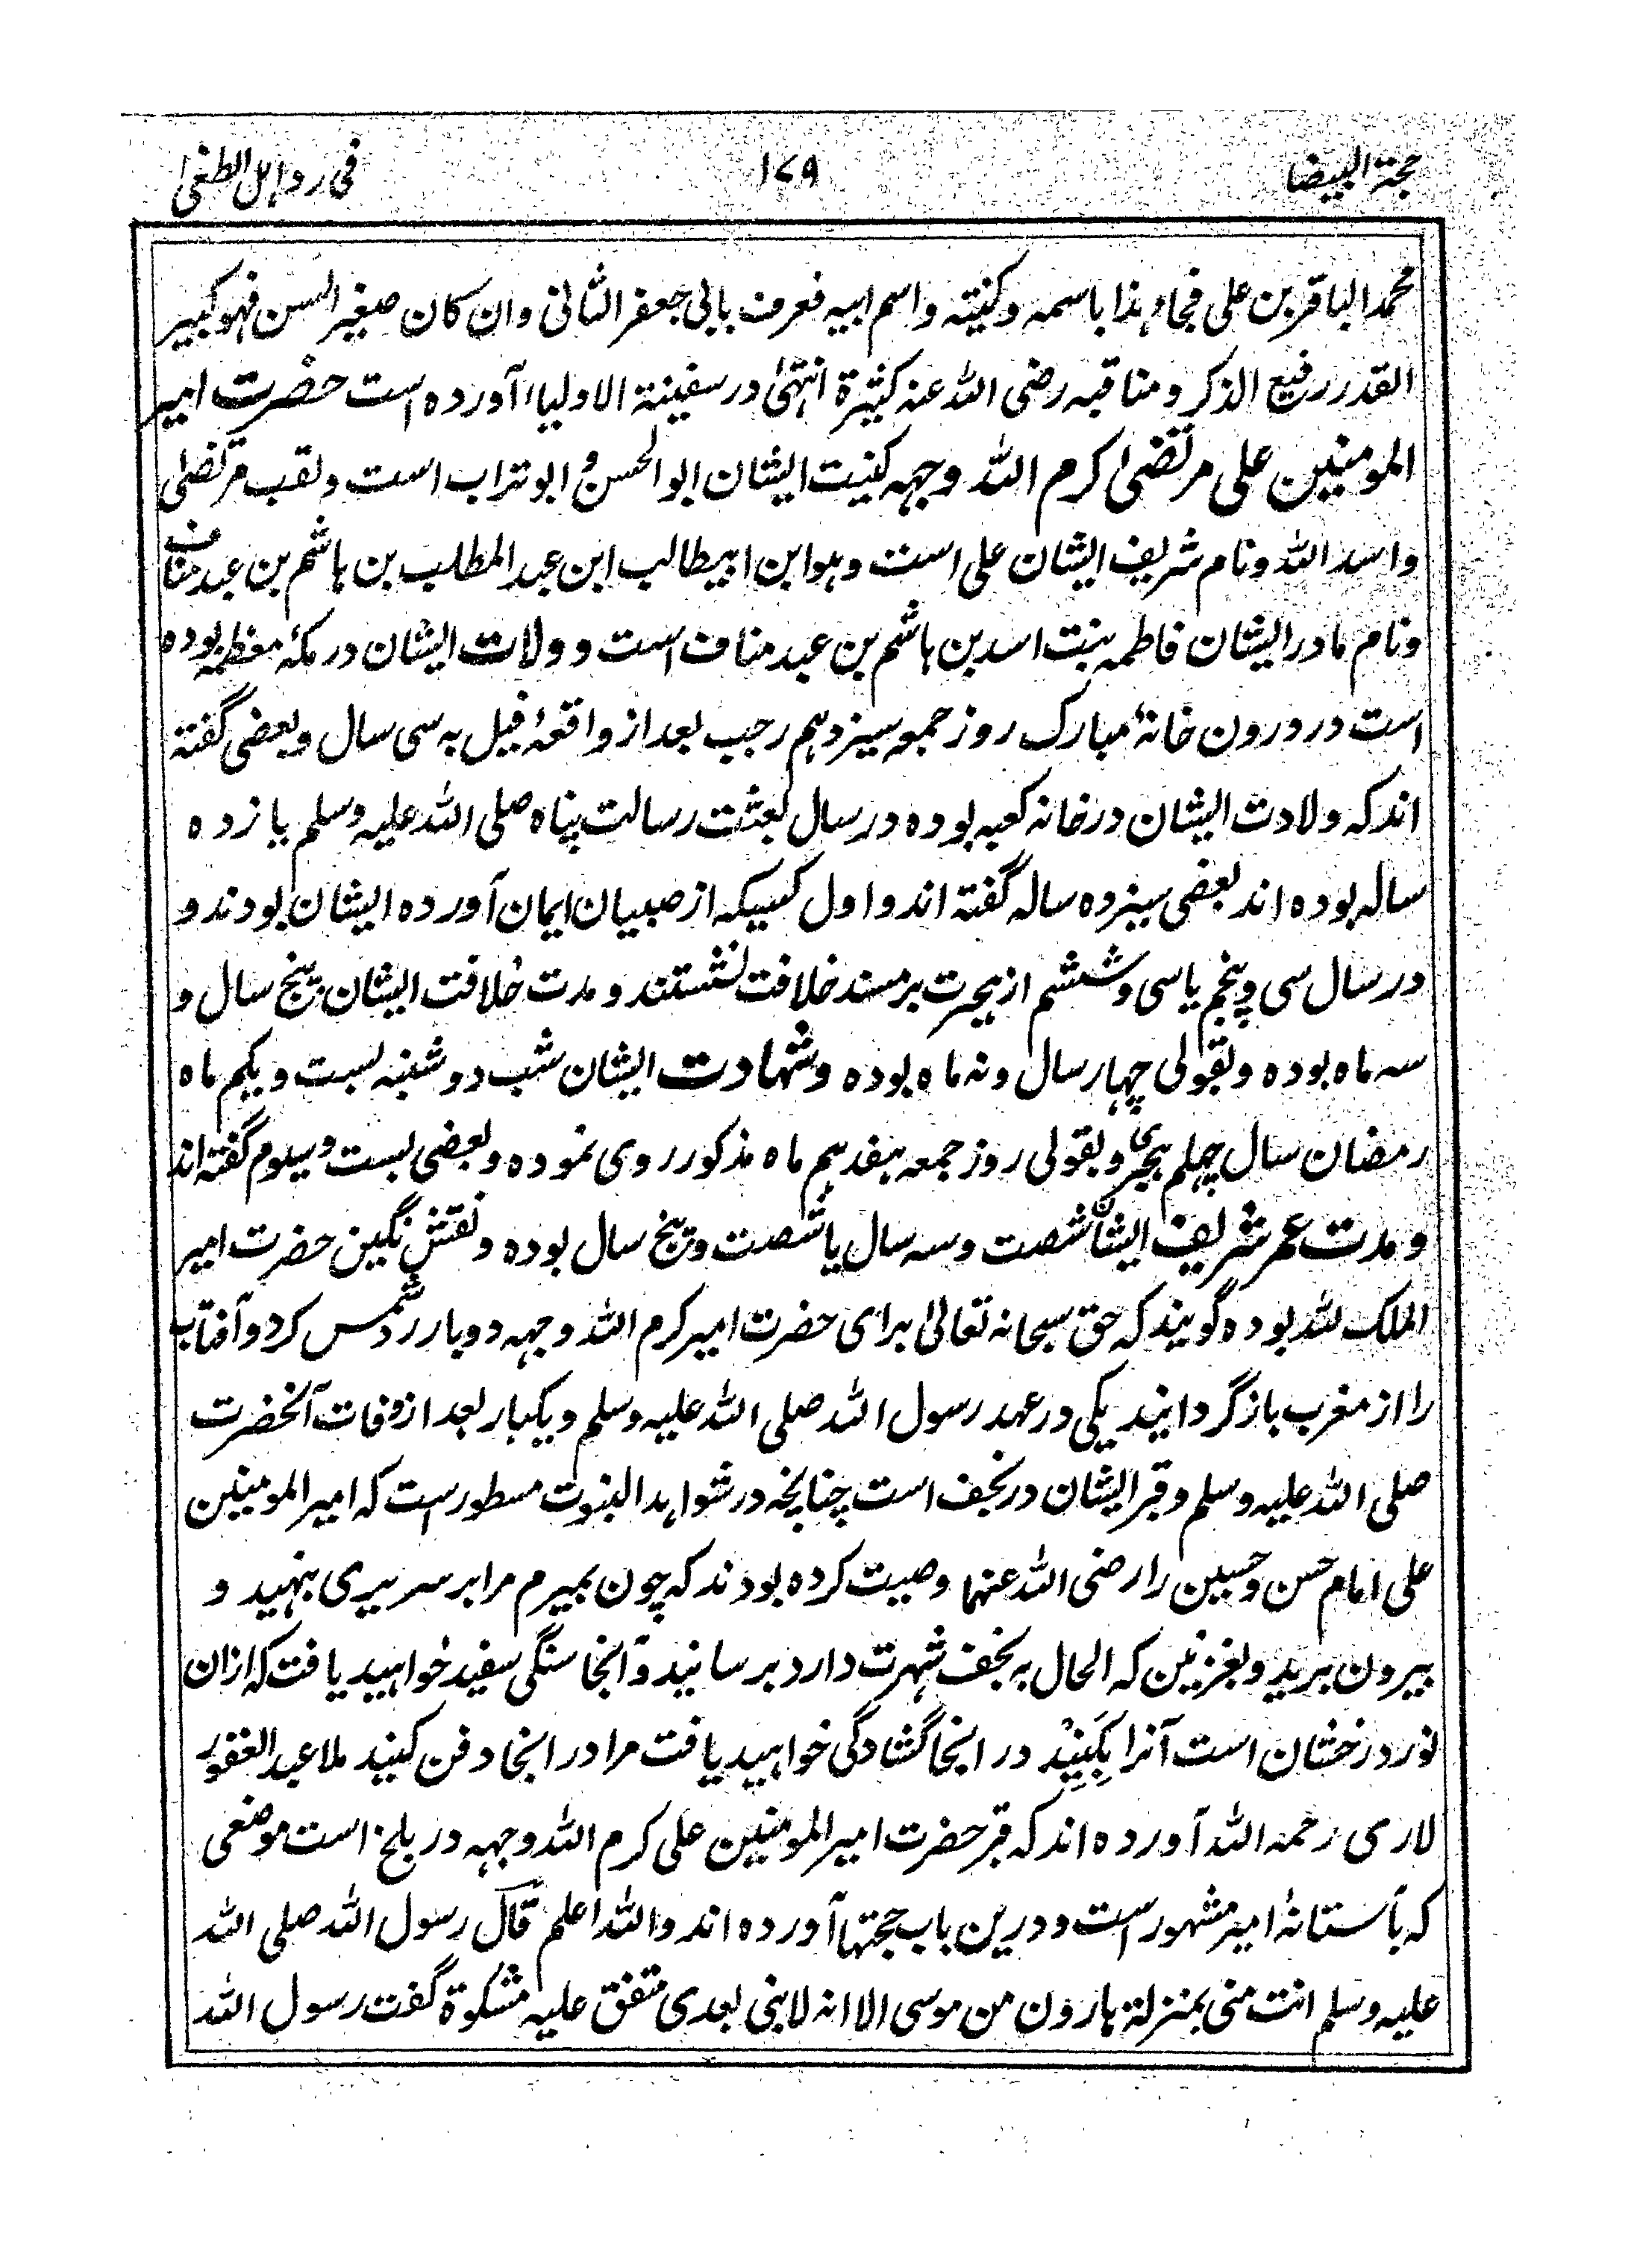 حجة البیضا ۱۷۹ فی رد اہل الطغیٰ
محمد الباقر بن علی فجاء ہذا باسمہ وکنیتہ واسم ابیہ فعرف بابی جعفر الثانی وان کان صغیر السن فہو کبیر
القدر رفیع الذکر ومناقبہ رضی اللہ عنہ کثیرة انتہیٰ در سفینة الاولیاء آورده است حضرت امیر
المومنین علی مرتضیٰ کرم اللہ وجہہ کنیت ایشان ابو الحسن و ابو تراب است ولقب مرتضیٰ
واسد اللہ ونام شریف ایشان علی است وہو ابن ابیطالب ابن عبد المطلب بن ہاشم بن عبد مناف
ونام مادر ایشان فاطمہ بنت اسد بن ہاشم بن عبد مناف است وولات ایشان در مکۂ معظمہ بوده
است در درون خانۂ مبارک روز جمعہ سیزدہم رجب بعد از واقعۂ فیل بہ سی سال وبعضی گفتہ
اند کہ ولادت ایشان در خانہ کعبہ بوده در سال بعثت رسالت پناه صلی اللہ علیہ وسلم یازده
سالہ بوده اند بعضی سیزده سالہ گفتہ اند واول کسیکہ از صبیان ایمان آورده ایشان بودند و
در سال سی وپنجم یا سی وششم از ہجرت بر مسند خلافت نشستند ومدت خلافت ایشان پنج سال و
سہ ماه بوده وبقولی چہار سال ونہ ماه بوده وشہادت ایشان شب دوشنبہ بست ویکم ماه
رمضان سال چہلم ہجری وبقولی روز جمعہ ہفدہم ماه مذکور روی نموده وبعضی بست وسیوم گفتہ اند
ومدت عمر شریف ایشان شصت وسہ سال یا شصت وپنج سال بوده ونقش نگین حضرت امیر
الملک للہ بوده گویند کہ حق سبحانہ تعالیٰ برای حضرت امیر کرم اللہ وجہہ دوبار رد شمس کرد وآفتاب
را از مغرب باز گردانید یکی در عہد رسول اللہ صلی اللہ علیہ وسلم ویکبار بعد از وفات آنحضرت
صلی اللہ علیہ وسلم وقبر ایشان در نجف است چنانچہ در شواہد النبوت مسطور است کہ امیر المومنین
علی امام حسن وحسین را رضی اللہ عنہما وصیت کرده بودند کہ چون بمیرم مرا بر سریری بنہید و
بیرون برید وبغرنین کہ الحال بہ نجف شہرت دارد برسانید وآنجا سنگی سفید خواہید یافت کہ ازان
نور درخشان است آنرا بِکَنِیْد در اینجا گشادگی خواہید یافت مرا در انجا دفن کنید ملا عبد الغفور
لاری رحمہ اللہ آورده اند کہ قبر حضرت امیر المومنین علی کرم اللہ وجہہ در بلخ است موضعی
کہ بآستانۂ امیر مشہور است ودرین باب حجتہا آورده اند واللہ اعلم قال رسول اللہ صلی اللہ
علیہ وسلم انت منی بمنزلة ہارون من موسی الا انہ لا نبی بعدی متفق علیہ مشکوة گفت رسول اللہ